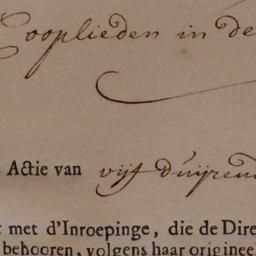 Cooplieden in de
Actie van vijf duijzend
t met d'Inroepinge, die de Dire
behooren, volgens haar originee